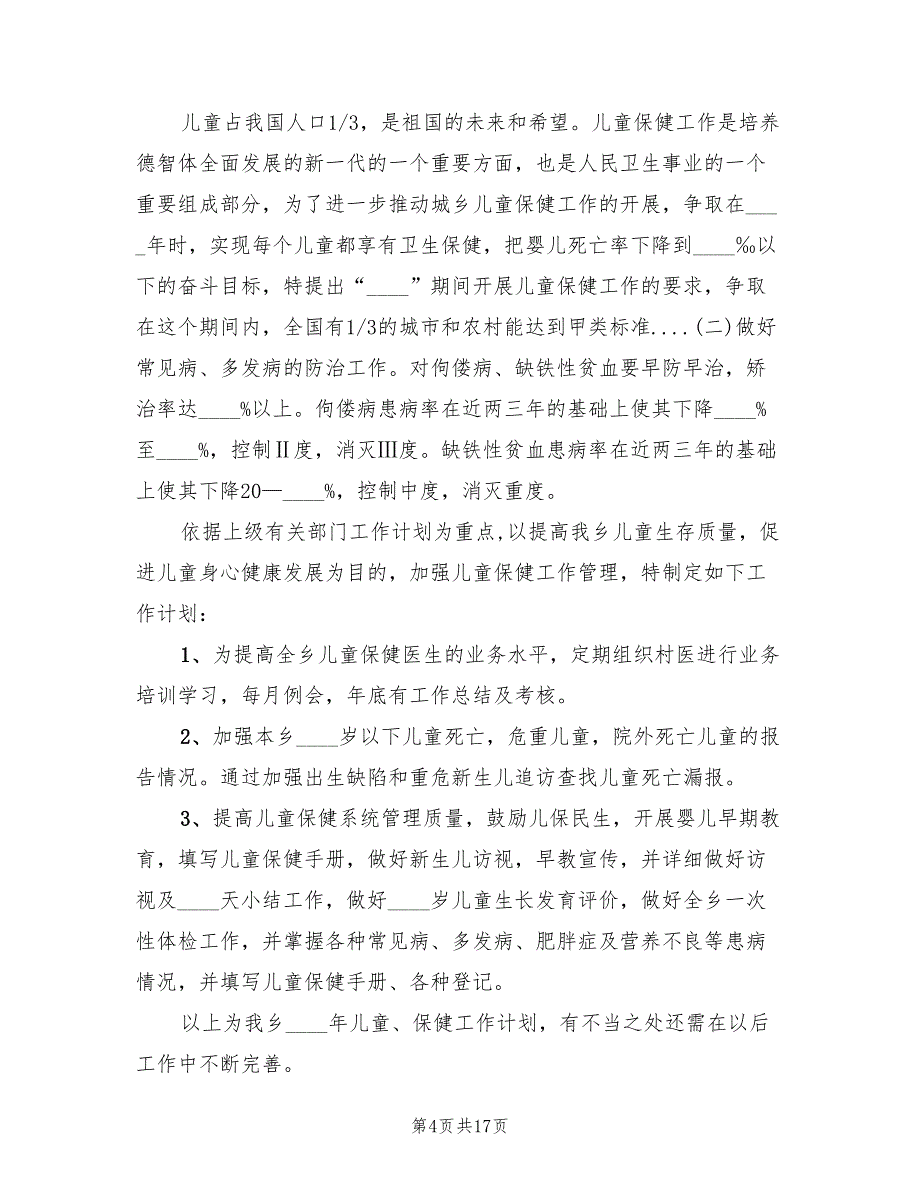 儿童占我国人口1/3，是祖国的未来和希望。儿童保健工作是培养
德智体全面发展的新一代的一个重要方面，也是人民卫生事业的一个
重要组成部分，为了进一步推动城乡儿童保健工作的开展，争取在___
_年时，实现每个儿童都享有卫生保健，把婴儿死亡率下降到____‰以
下的奋斗目标，特提出“____”期间开展儿童保健工作的要求，争取
在这个期间内，全国有1/3的城市和农村能达到甲类标准....(二)做好
常见病、多发病的防治工作。对佝偻病、缺铁性贫血要早防早治，矫
治率达____%以上。佝偻病患病率在近两三年的基础上使其下降____%
至____%，控制Ⅱ度，消灭Ⅲ度。缺铁性贫血患病率在近两三年的基础
上使其下降20—____%，控制中度，消灭重度。
依据上级有关部门工作计划为重点,以提高我乡儿童生存质量，促
进儿童身心健康发展为目的，加强儿童保健工作管理，特制定如下工
作计划：
1、为提高全乡儿童保健医生的业务水平，定期组织村医进行业务
培训学习，每月例会，年底有工作总结及考核。
2、加强本乡____岁以下儿童死亡，危重儿童，院外死亡儿童的报
告情况。通过加强出生缺陷和重危新生儿追访查找儿童死亡漏报。
3、提高儿童保健系统管理质量，鼓励儿保民生，开展婴儿早期教
育，填写儿童保健手册，做好新生儿访视，早教宣传，并详细做好访
视及____天小结工作，做好____岁儿童生长发育评价，做好全乡一次
性体检工作，并掌握各种常见病、多发病、肥胖症及营养不良等患病
情况，并填写儿童保健手册、各种登记。
以上为我乡____年儿童、保健工作计划，有不当之处还需在以后
工作中不断完善。
第4页共17页